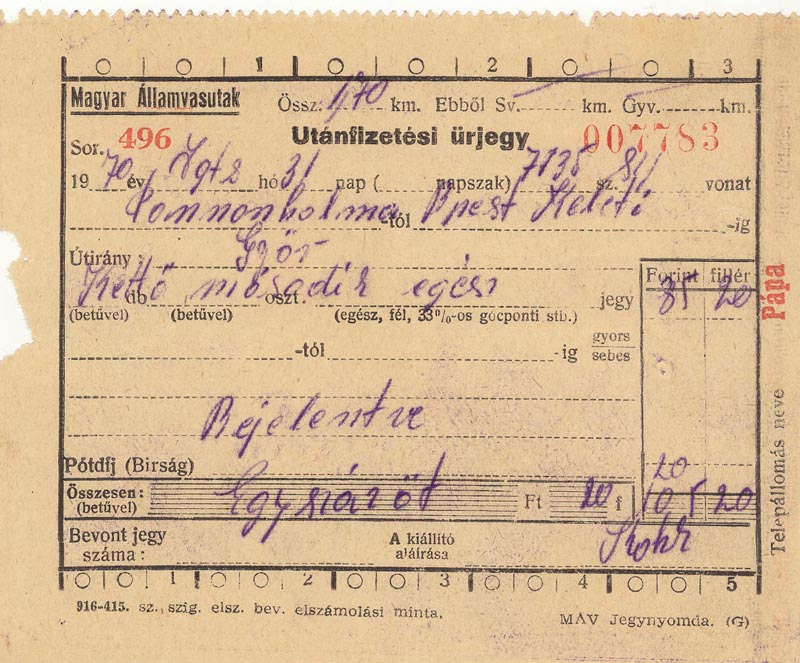 1 2 3
Magyar Államvasutak Össz: 170 km. Ebből Sv. km. Gyv. km.
Sor. 496 Utánfizetési űrjegy 007783
1970 év hó 31 nap ( napszak) 7135 sz. vonat
Pannonhalma -tól Bpest Keleti -ig
Útirány: Győr
Forint fillér
Kettő db második oszt. egész jegy 85 20
(betűvel) (betűvel) (egész, fél, 33%-os gócponti stb.)
-tól -ig gyors sebes
Bejelentve
Pótdíj (Birság) 20
Összesen: (betűvel) Egyszázöt Ft 20 f 105 20
Bevont jegy száma: A kiállító aláírása
1 2 3 4 5
916-415. sz. szig. elsz. bev. elszámolási minta.
MÁV Jegynyomda. (G)
Pápa
Telepállomás neve